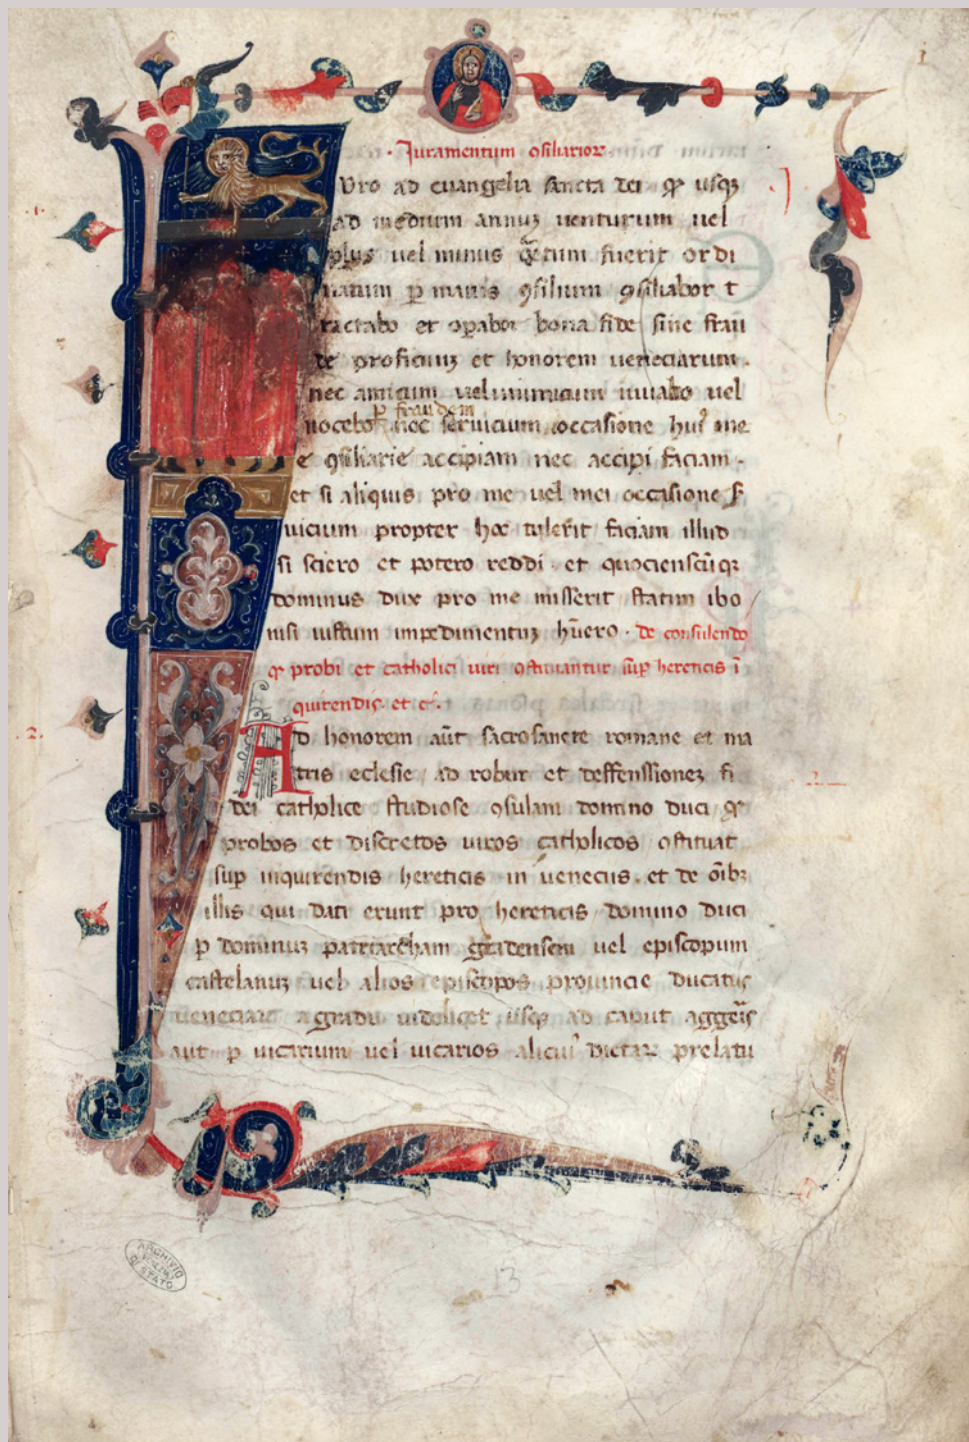 1
Juramentum ɔsiliarioꝝ
Uro ad euangelia sancta dei ꝙ usqꝫ
ad medium annuꝫ uenturum uel
plus uel minus fuerit ordi
natum ꝑ maius ɔsilium ɔsiliabor t
ractabo et oꝑabor bona fide sine frau
de proficuuꝫ et honorem ueneciarum.
nec amicum uel inimicum iuuabo uel
ꝑ fraudem
nocebo nec seruicium occasione huiꝰ me
e ɔsiliarie accipiam nec accipi faciam.
et si aliquis pro me uel mei occasione ẜ
uicium propter hoc tulerit faciam illud
si sciero et potero reddi. et quocienscūqꝫ
dominus dux pro me misserit statim ibo
nisi iustum impedimentuꝫ hūero. de consulendo
ꝙ probi et catholici uiri ɔstituantur sup hereticis ī
quirendis. et c̄.
.1.
.2.
Ad honorem aūt sacrosancte romane et ma
tris eclesie ad robur et deffenssioneꝫ fi
dei catholice studiose ɔsulam domino duci ꝙ
probos et discretos uiros catholicos ɔstituat
suꝑ inquirendis hereticis in ueneciis. et de oībꝫ
illis qui dati erunt pro hereticis domino duci
ꝑ dominuꝫ patriarcham gradensem uel episcopum
castelanuꝫ uel alios episcopos prouincie ducatus
ueneciaꝝ a gradu uidelicet usqꝫ ad caput aggeris
aut ꝑ uicarium uel uicarios alicuiꝰ dictaꝝ prelatu
ARCHIVIO
DI STATO
13